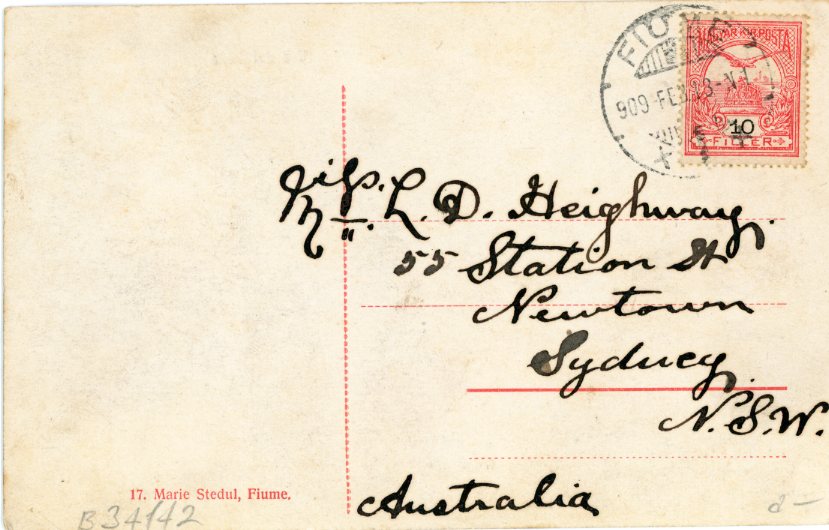 FIUME
MAGYAR KIR. POSTA
909-FEB
10
FILLÉR
L. D. Heighway.
55 Station St
Newtown
Sydney.
N.S.W.
Australia
17. Marie Stedul, Fiume.
B34142